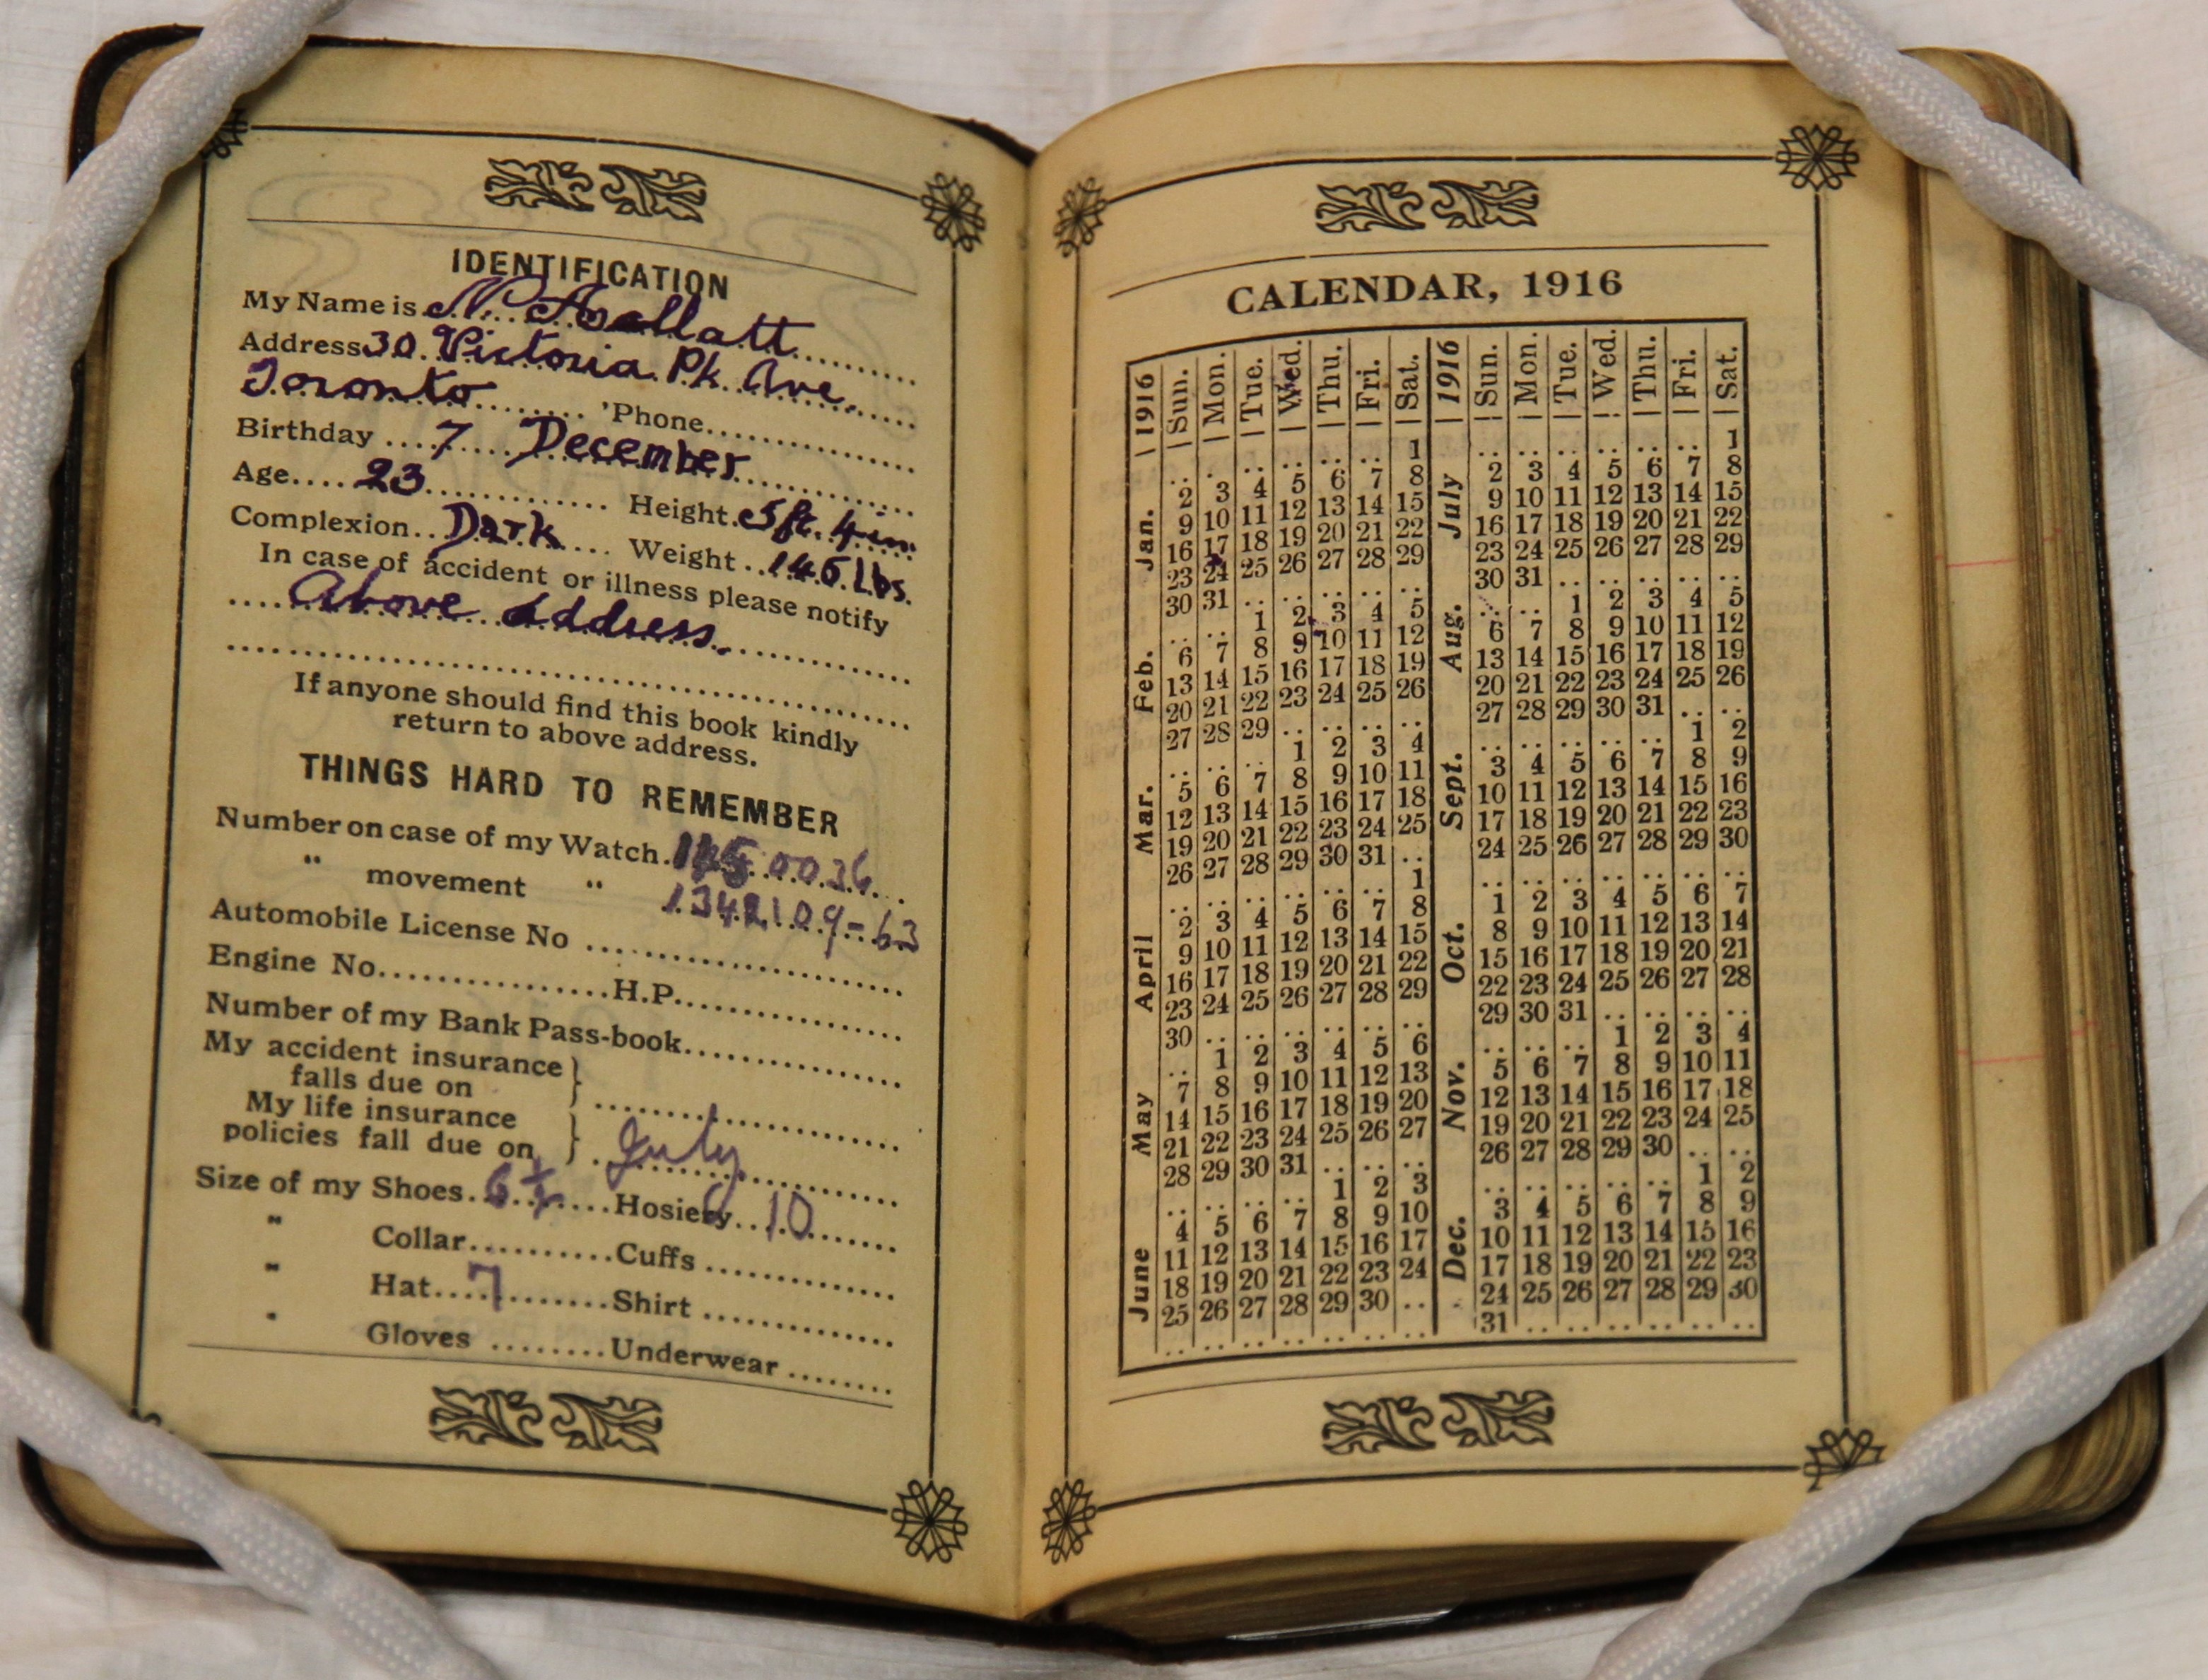 IDENTIFICATION
My Name is N.
Address 30. Victoria Pk. Ave.
Toronto 'Phone
Birthday 7 December
Age 23 Height 5ft. 4in.
Complexion Dark Weight Lbs.
In case of accident or illness please notify
Above Address
If anyone should find this book kindly
return to above address.
THINGS HARD TO REMEMBER
Number on case of my Watch
" movement " 1342109-63
Automobile License No
Engine No. H.P.
Number of my Bank Pass-book
My accident insurance
falls due on
My life insurance
policies fall due on July
Size of my Shoes 6½ Hosiery 10
" Collar Cuffs
" Hat 7 Shirt
" Gloves Underwear
CALENDAR, 1916
1916 Sun. Mon. Tue. Wed. Thu. Fri. Sat.
Jan. .. .. .. .. .. .. 1
2 3 4 5 6 7 8
9 10 11 12 13 14 15
16 17 18 19 20 21 22
23 24 25 26 27 28 29
30 31 .. .. .. .. ..
Feb. .. .. 1 2 3 4 5
6 7 8 9 10 11 12
13 14 15 16 17 18 19
20 21 22 23 24 25 26
27 28 29 .. .. .. ..
Mar. .. .. .. 1 2 3 4
5 6 7 8 9 10 11
12 13 14 15 16 17 18
19 20 21 22 23 24 25
26 27 28 29 30 31 ..
April .. .. .. .. .. .. 1
2 3 4 5 6 7 8
9 10 11 12 13 14 15
16 17 18 19 20 21 22
23 24 25 26 27 28 29
30 .. .. .. .. .. ..
May .. 1 2 3 4 5 6
7 8 9 10 11 12 13
14 15 16 17 18 19 20
21 22 23 24 25 26 27
28 29 30 31 .. .. ..
June .. .. .. .. 1 2 3
4 5 6 7 8 9 10
11 12 13 14 15 16 17
18 19 20 21 22 23 24
25 26 27 28 29 30 ..
.. .. .. .. .. .. ..
1916 Sun. Mon. Tue. Wed. Thu. Fri. Sat.
July .. .. .. .. .. .. 1
2 3 4 5 6 7 8
9 10 11 12 13 14 15
16 17 18 19 20 21 22
23 24 25 26 27 28 29
30 31 .. .. .. .. ..
Aug. .. .. 1 2 3 4 5
6 7 8 9 10 11 12
13 14 15 16 17 18 19
20 21 22 23 24 25 26
27 28 29 30 31 .. ..
Sept. .. .. .. .. .. 1 2
3 4 5 6 7 8 9
10 11 12 13 14 15 16
17 18 19 20 21 22 23
24 25 26 27 28 29 30
.. .. .. .. .. .. ..
Oct. 1 2 3 4 5 6 7
8 9 10 11 12 13 14
15 16 17 18 19 20 21
22 23 24 25 26 27 28
29 30 31 .. .. .. ..
Nov. .. .. .. 1 2 3 4
5 6 7 8 9 10 11
12 13 14 15 16 17 18
19 20 21 22 23 24 25
26 27 28 29 30 .. ..
Dec. .. .. .. .. .. 1 2
3 4 5 6 7 8 9
10 11 12 13 14 15 16
17 18 19 20 21 22 23
24 25 26 27 28 29 30
31 .. .. .. .. .. ..